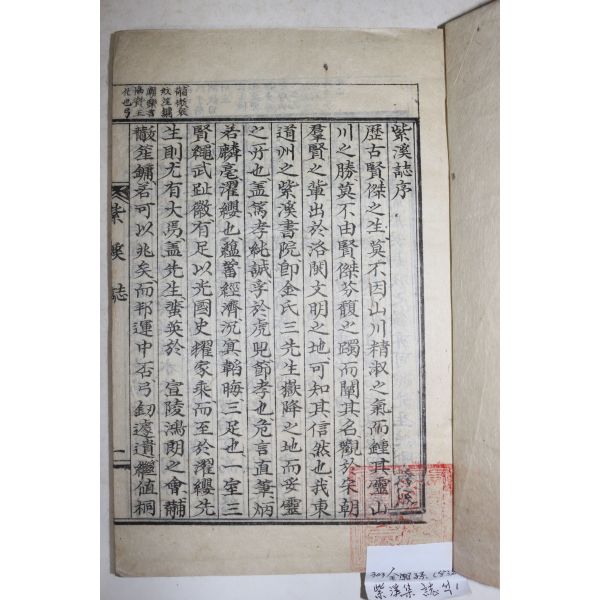 紫溪誌序
歷古賢傑之生莫不因山川精淑之氣而鍾其靈山
川之勝莫不由賢傑芬馥之躅而闡其名觀於宋朝
羣賢之輩出於洛閩文明之地可知其信然也我東
道州之紫溪書院卽金氏三先生嶽降之地而妥靈
之所也盖篤孝純誠孚於虎兕節孝也危言直筆炳
若麟毫濯纓也蘊蓄經濟沉冥韜晦三足也一室三
賢繩武趾徽有足以光國史耀家乘而至於濯纓先
生則尤有大焉盖先生蜚英於 宣陵鴻朗之會黼
黻笙鏞若可以兆矣而邦運中否弓劒遽遺繼値桐
紫溪誌
二
紫溪集 誌